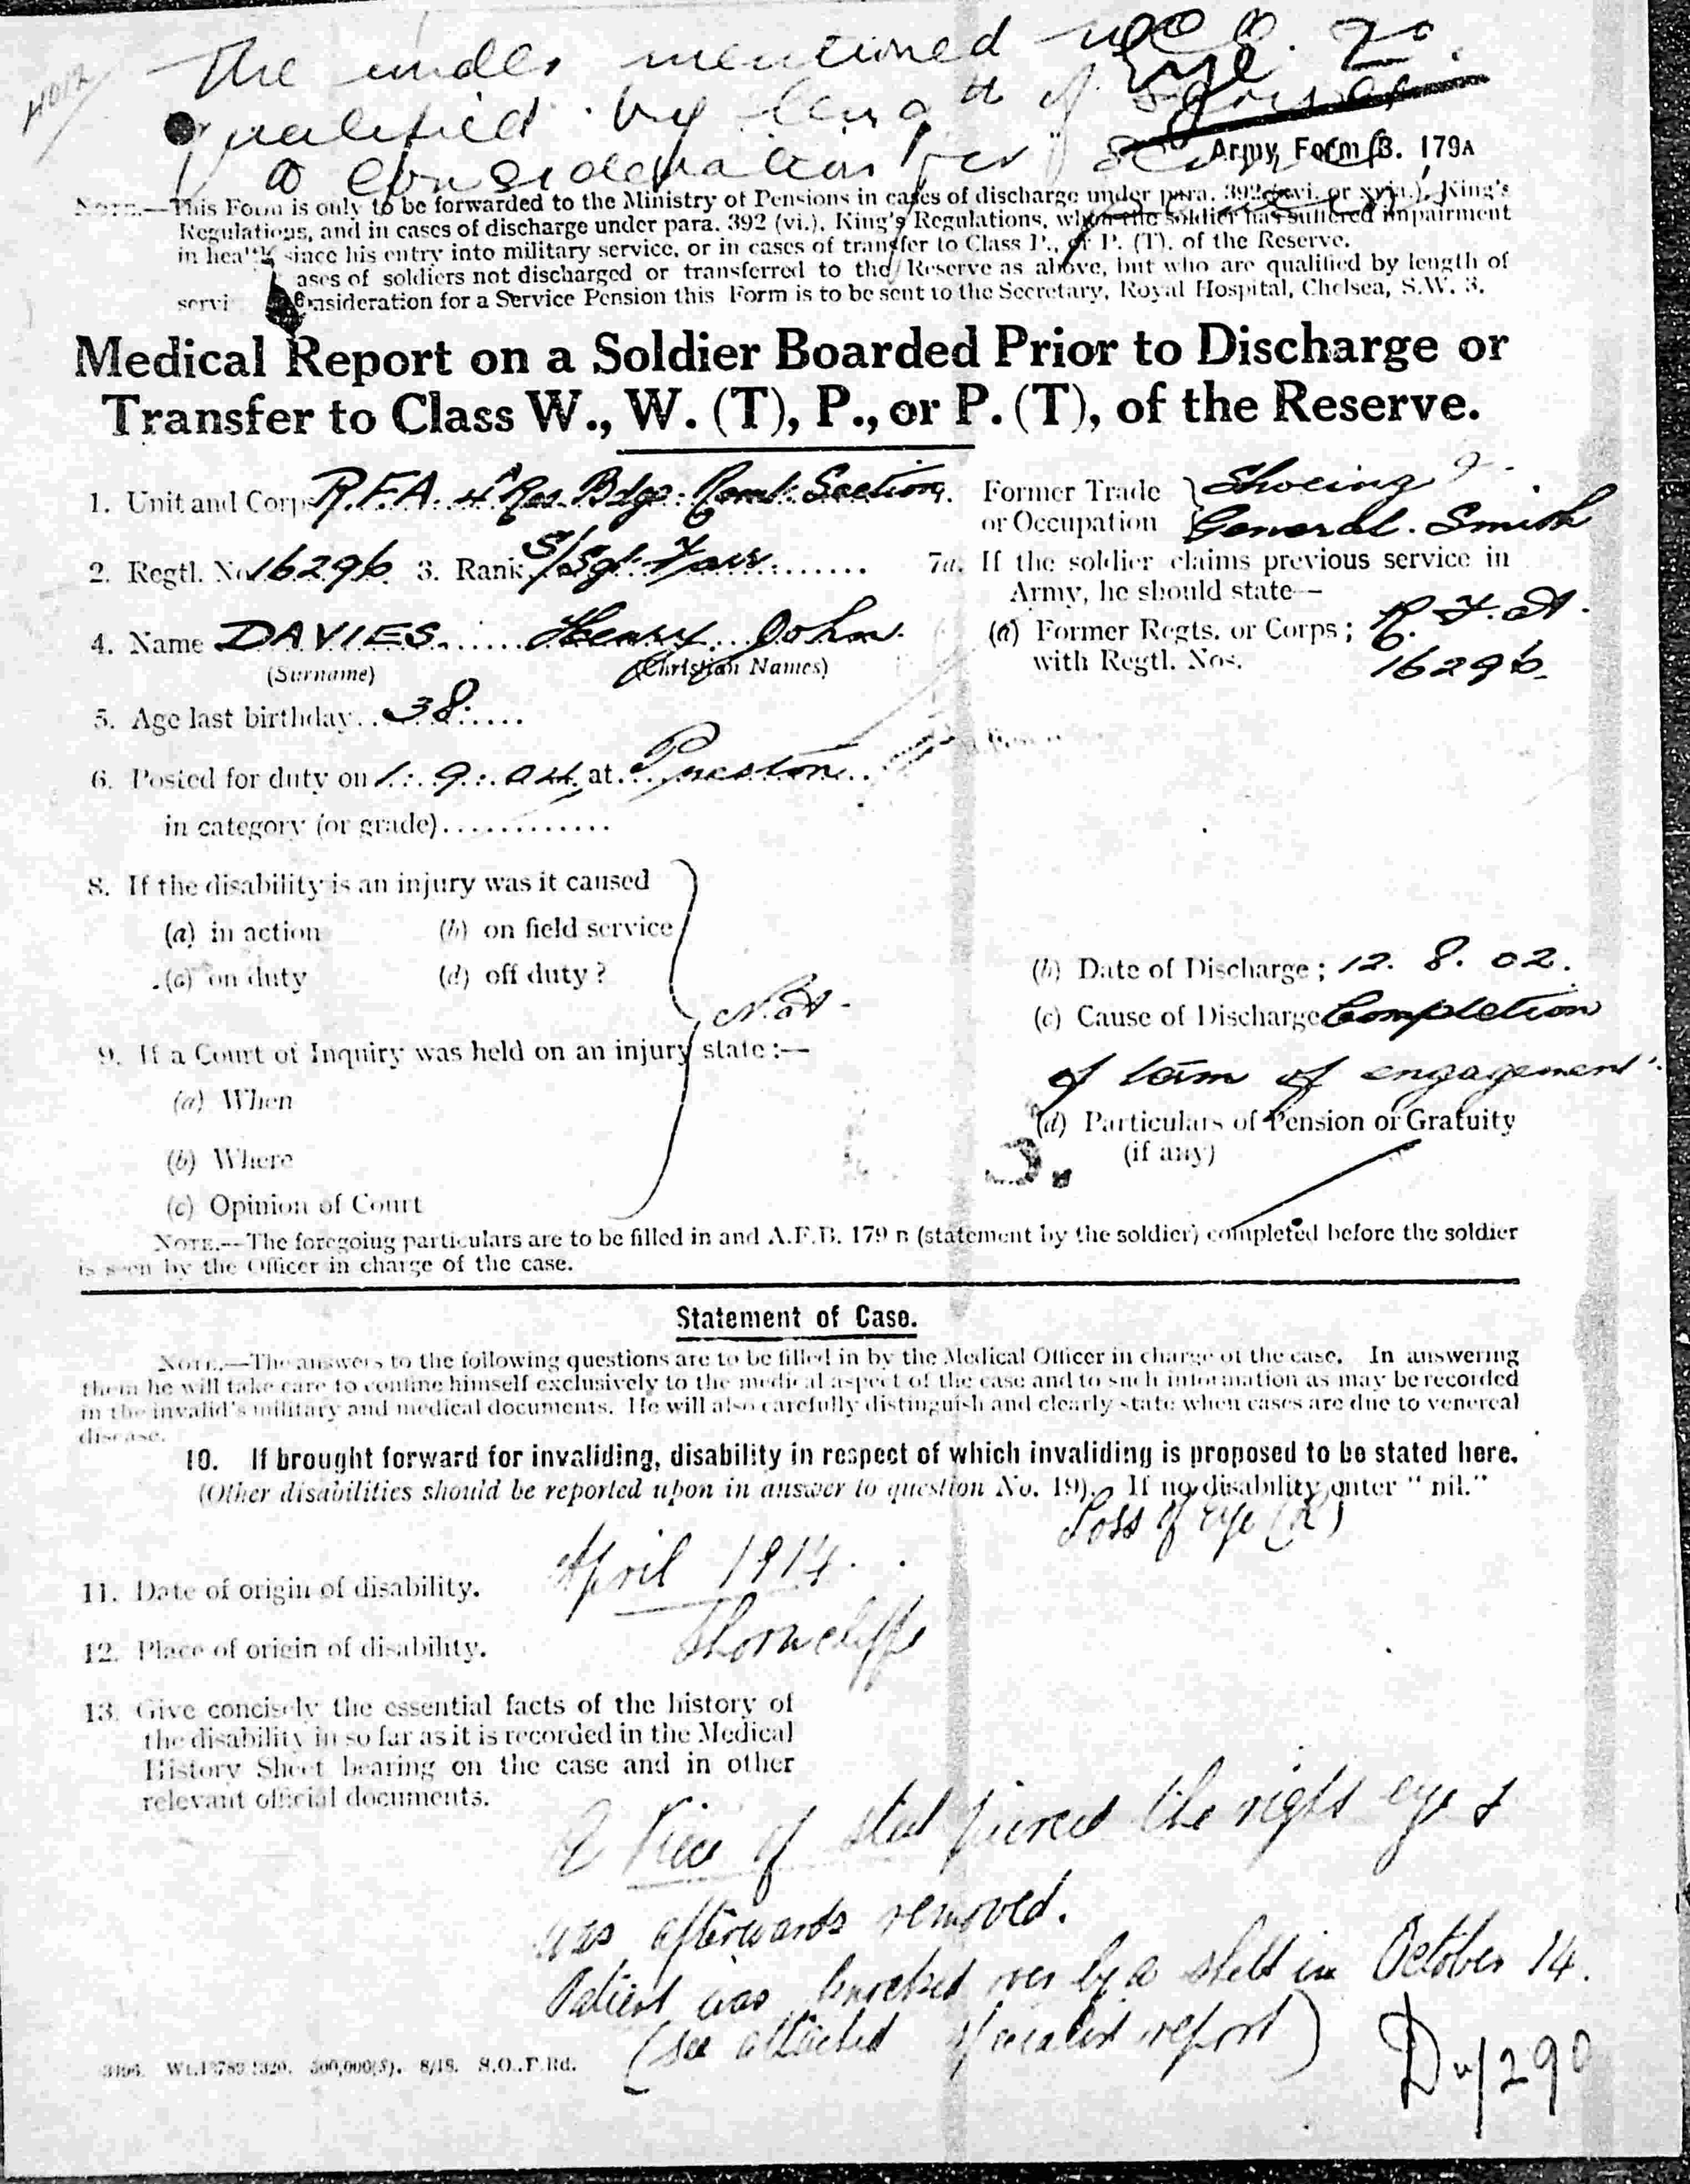 The under mentioned N.C.O. is
qualified by length of service
a consideration for
Army Form B. 179A
NOTE.—This Form is only to be forwarded to the Ministry of Pensions in cases of discharge under para. 392 (xvi. or xvia.), King's
Regulations, and in cases of discharge under para. 392 (vi.), King's Regulations, when the soldier has suffered impairment
in health since his entry into military service, or in cases of transfer to Class P., or P. (T). of the Reserve.
ases of soldiers not discharged or transferred to the Reserve as above, but who are qualified by length of
servi onsideration for a Service Pension this Form is to be sent to the Secretary, Royal Hospital, Chelsea, S.W. 3.
Medical Report on a Soldier Boarded Prior to Discharge or
Transfer to Class W., W. (T), P., or P. (T), of the Reserve.
1. Unit and Corps R.F.A. 4A Res. Bdge: Remt: Section.
2. Regtl. No. 16296 3. Rank S/Sgt Farr
4. Name DAVIES Henry John
(Surname) (Christian Names)
5. Age last birthday 38
6. Posted for duty on 1.9.04 at Preston
in category (or grade)
Former Trade or Occupation } Shoeing &
General Smith
7a. If the soldier claims previous service in
Army, he should state—
(a) Former Regts. or Corps; R.F.A.
with Regtl. Nos. 16296
8. If the disability is an injury was it caused
(a) in action (b) on field service
(c) on duty (d) off duty?
Not
9. If a Court of Inquiry was held on an injury state:—
(a) When
(b) Where
(c) Opinion of Court
(b) Date of Discharge; 12. 8. 02.
(c) Cause of Discharge Completion
of term of engagement.
(d) Particulars of Pension or Gratuity
(if any)
NOTE.—The foregoing particulars are to be filled in and A.F.B. 179 B (statement by the soldier) completed before the soldier
is seen by the Officer in charge of the case.
Statement of Case.
NOTE.—The answers to the following questions are to be filled in by the Medical Officer in charge of the case. In answering
them he will take care to confine himself exclusively to the medical aspect of the case and to such information as may be recorded
in the invalid's military and medical documents. He will also carefully distinguish and clearly state when cases are due to venereal
disease.
10. If brought forward for invaliding, disability in respect of which invaliding is proposed to be stated here.
(Other disabilities should be reported upon in answer to question No. 19). If no disability enter "nil."
Loss of eye (R)
11. Date of origin of disability. April 1914.
12. Place of origin of disability. Shorncliffe
13. Give concisely the essential facts of the history of
the disability in so far as it is recorded in the Medical
History Sheet bearing on the case and in other
relevant official documents.
A Piece of steel pierced the right eye &
was afterwards removed.
Patient was knocked over by a shell in October 14.
(see attached specialist report)
3196. Wt. 500,000(S). 8/18. S.O.,F.Rd.